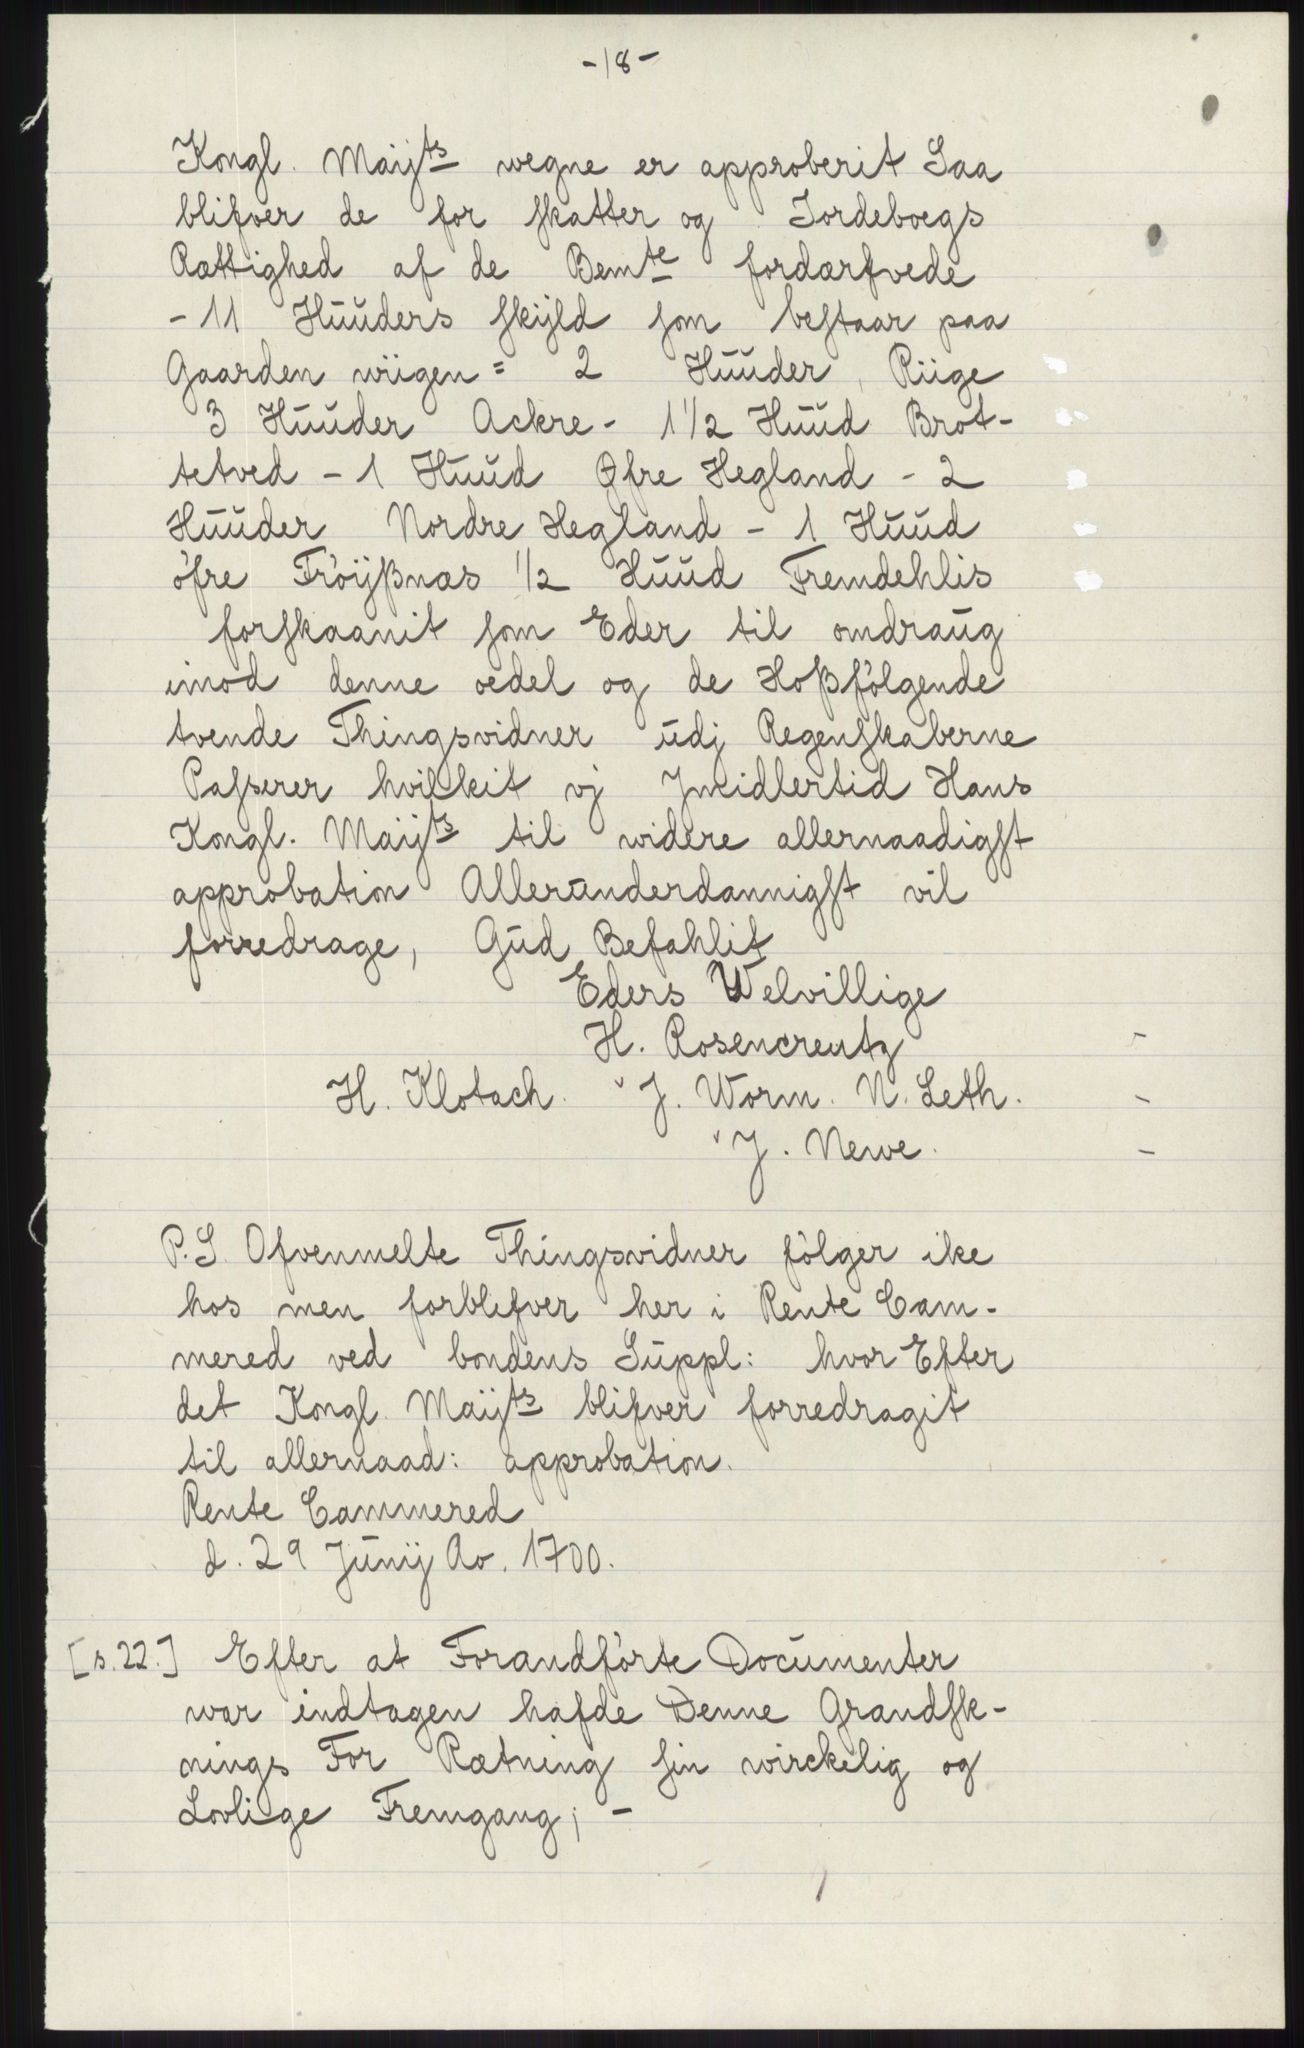 -18-
Kongl. Maijts wegne er approberit Saa
blifver de for skatter og Jordebogs
Rættighed af de Bemte fordærfvede
- 11 Huuders skijld som bestaar paa
Gaarden wiigen = 2 Huuder, Riige
3 Huuder Ackre - 1 1/2 Huud Brot-
tetved - 1 Huud Øfre Hegland - 2
Huuder Nordre Hegland - 1 Huud
öfre Fröijßnæs 1/2 Huud Fremdehlis
forskaanit som Eder til omdraug
imod denne sedel og de Hoßfölgende
tvende Thingsvidner udj Regenskaberne
Passerer hvilkit vj Jmidlertid Hans
Kongl. Maijts til widere allernaadigst
approbation Allerunderdannigst vil
forredrage, Gud Befahlit
Eders Welvillige
H. Rosencreutz
H. Klotach. J. Worm. N. Leth.
J. Newe.
P.S. Ofvenmelte Thingsvidner fölger ike
hos men forblifver her i Rente Cam-
mered ved bondens Suppl: hvor Efter
det Kongl. Maijts blifver forredragit
til allernaad: approbation.
Rente Cammered
d. 29 Junij Ao. 1700.
[s.22.] Efter at Forandförte Documenter
war indtagen hafde Denne Grandsk-
nings For Rætning sin wirckelig og
Lovlige Fremgang; -